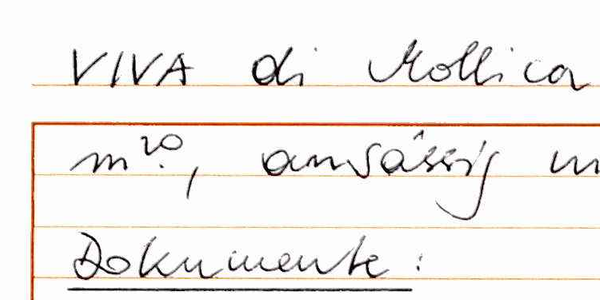 VIVA di Mollica
ansässig
Dokumente: